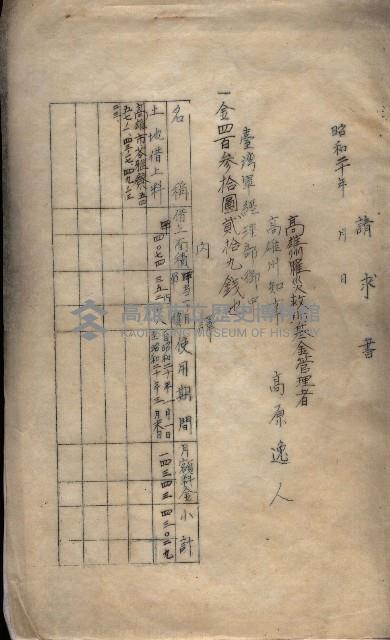 請求書
昭和二十年 月 日
高雄州罹災救助基金管理者
高雄州知事 高原逸人
臺灣軍經理部御中
一金四百參拾圓貳拾九錢也
內譯
名稱
借上面積
使用期間
月額料金
小計
土地借上料
高雄市苓雅寮
自昭和二十年一月一日
至昭和二十年三月末日
一四三四三
四三〇二九
高雄市立歷史博物館
KAOHSIUNG MUSEUM OF HISTORY